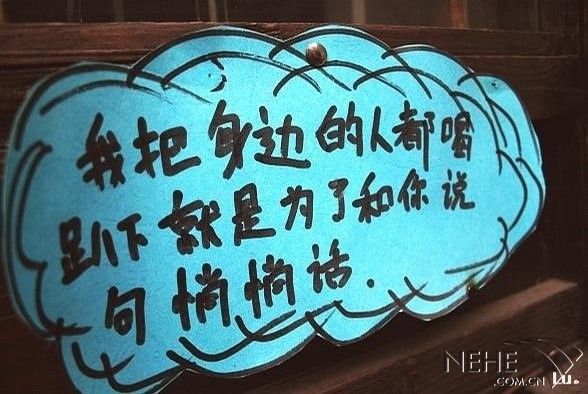 我把身边的人都喝
趴下就是为了和你说
句悄悄话.
NEHE
.COM.CN Lu.